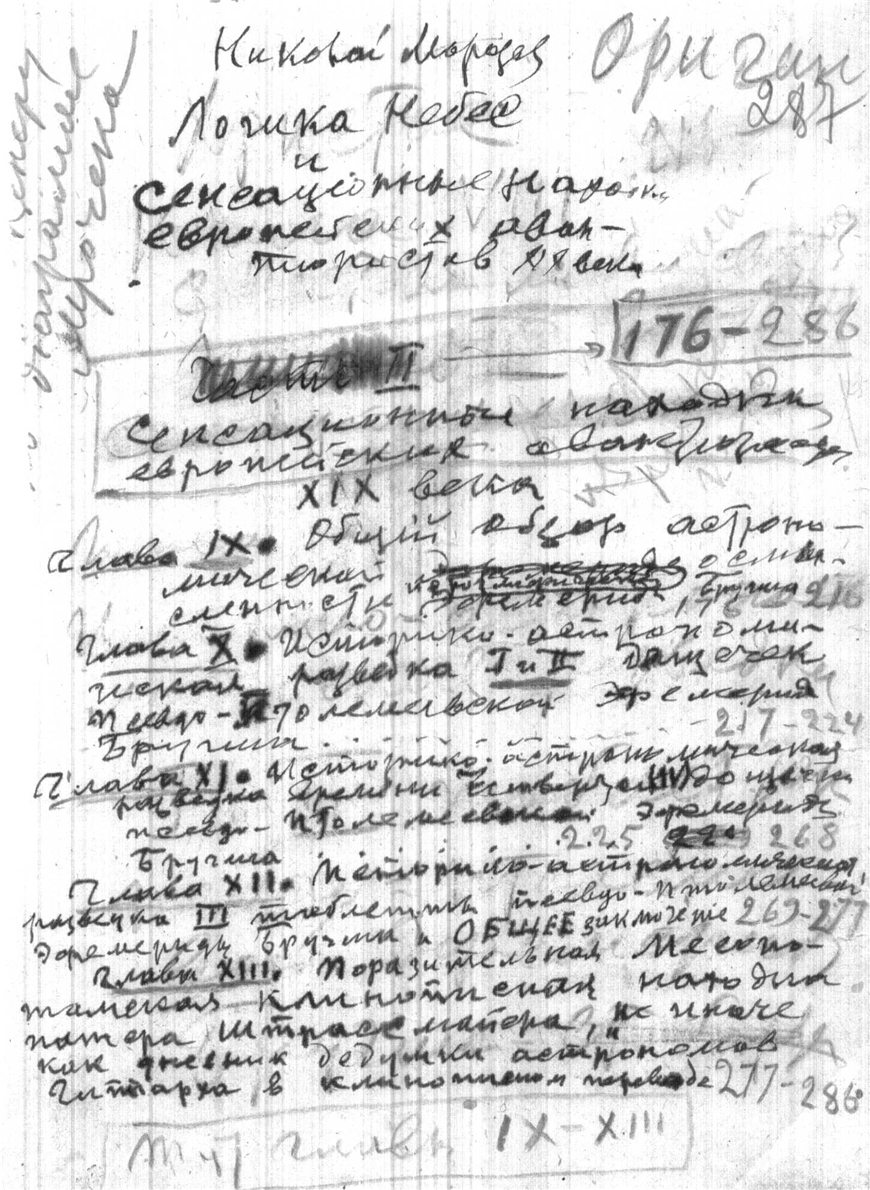 Николай Морозов
Ориган
287
Логика Небес
и
Сенсационные находки
европейских аван-
тюристов XX века
176-286
Часть II
Сенсационные находки
европейских авантюристов
XIX века
Глава IX. Общий обзор астроно-
мической осмы-
сленности Эфемерид Бругша 176-216
Глава X. Историко-астрономи-
ческая разведка I и II дощечек
псевдо-Птолемаевской Эфемериды
Бругша 217-224
Глава XI. Историко-астрономическая
разведка времени Четвертой дощечки
псевдо-Птолемеевской Эфемериды
Бругша 225 268
Глава XII. Историко-астрономическая
разведка III таблетки псевдо-Птолемеевой
Эфемериды Бругша и ОБЩЕЕ заключение 269-277
Глава XIII. Поразительная Месопо-
тамская клинописная находка
патера Штрассмайера, не иначе
как дневник дедушки астрономов
Гиппарха в клинописном переводе 277-286
Тут главы IX-XIII